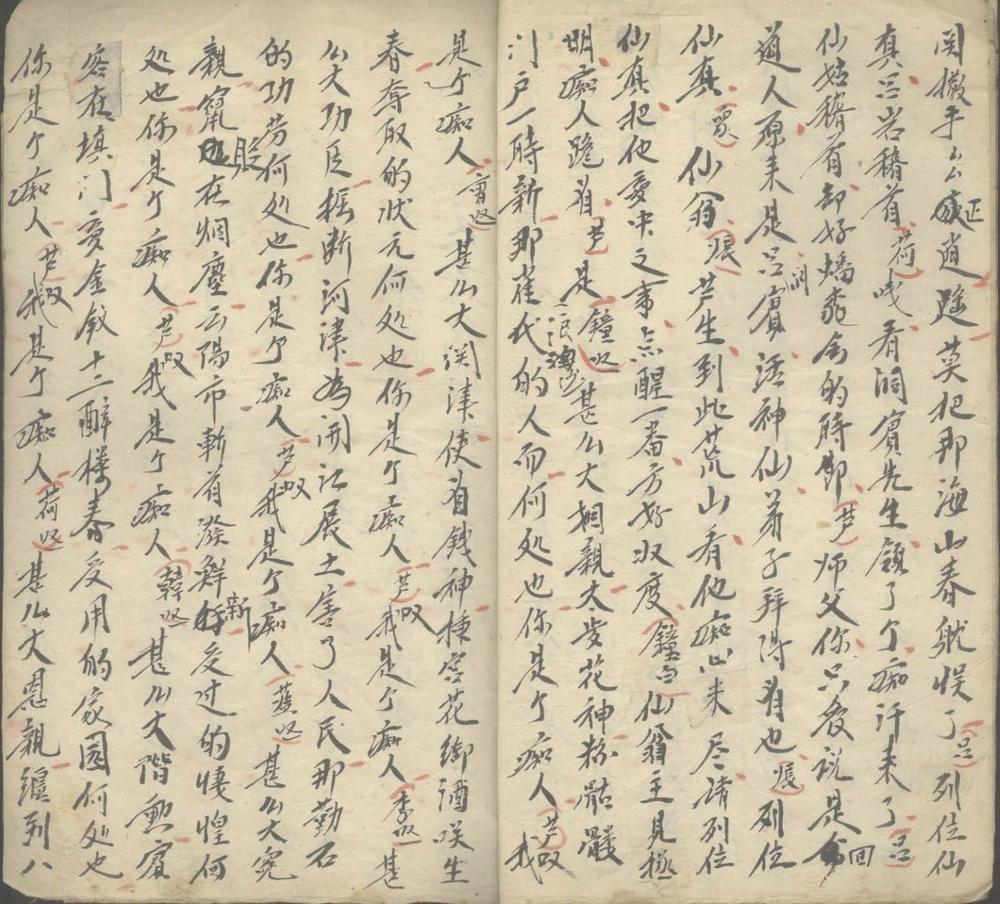 撒手么正逍遥莫把那海山春躭悮了吕列位仙
真吕岩稽首荷看洞賓先生領了个痴汗来了吕
仙姑稽首却好蟠桃会的時節芦师父你只说是回
道人原来是吕洞賓活神仙弟子拜得着也張列位
仙真眾仙翁張芦生到此荒山看他痴心未尽請列位
仙真把他夢中之事点醒一番方好収度鐘白仙翁主見極
明痴人跪着芦是鐘唱浪淘沙甚么大姻親太歲花神粉骷髏
门户一時新那崔氏的人而何处也你是个痴人芦叹我
是个痴人曹唱甚么大関津使着錢神揷宫花御酒咲生
春奪取的状元何处也你是个痴人芦叹我是个痴人李唱甚
么大功臣掘断河津為開疆展土害了人民那勒石
的功劳何处也你是个痴人芦叹我是个痴人藍唱甚么大冤
親竄貶在烟塵云陽市斬首潑鮮新受过的悽惶何
处也你是个痴人芦叹我是个痴人韓唱甚么大階勲賓
客在填门夢金釵十二醉樓春受用的家园何处也
你是个痴人芦叹我是个痴人荷唱甚么大恩親纏到八